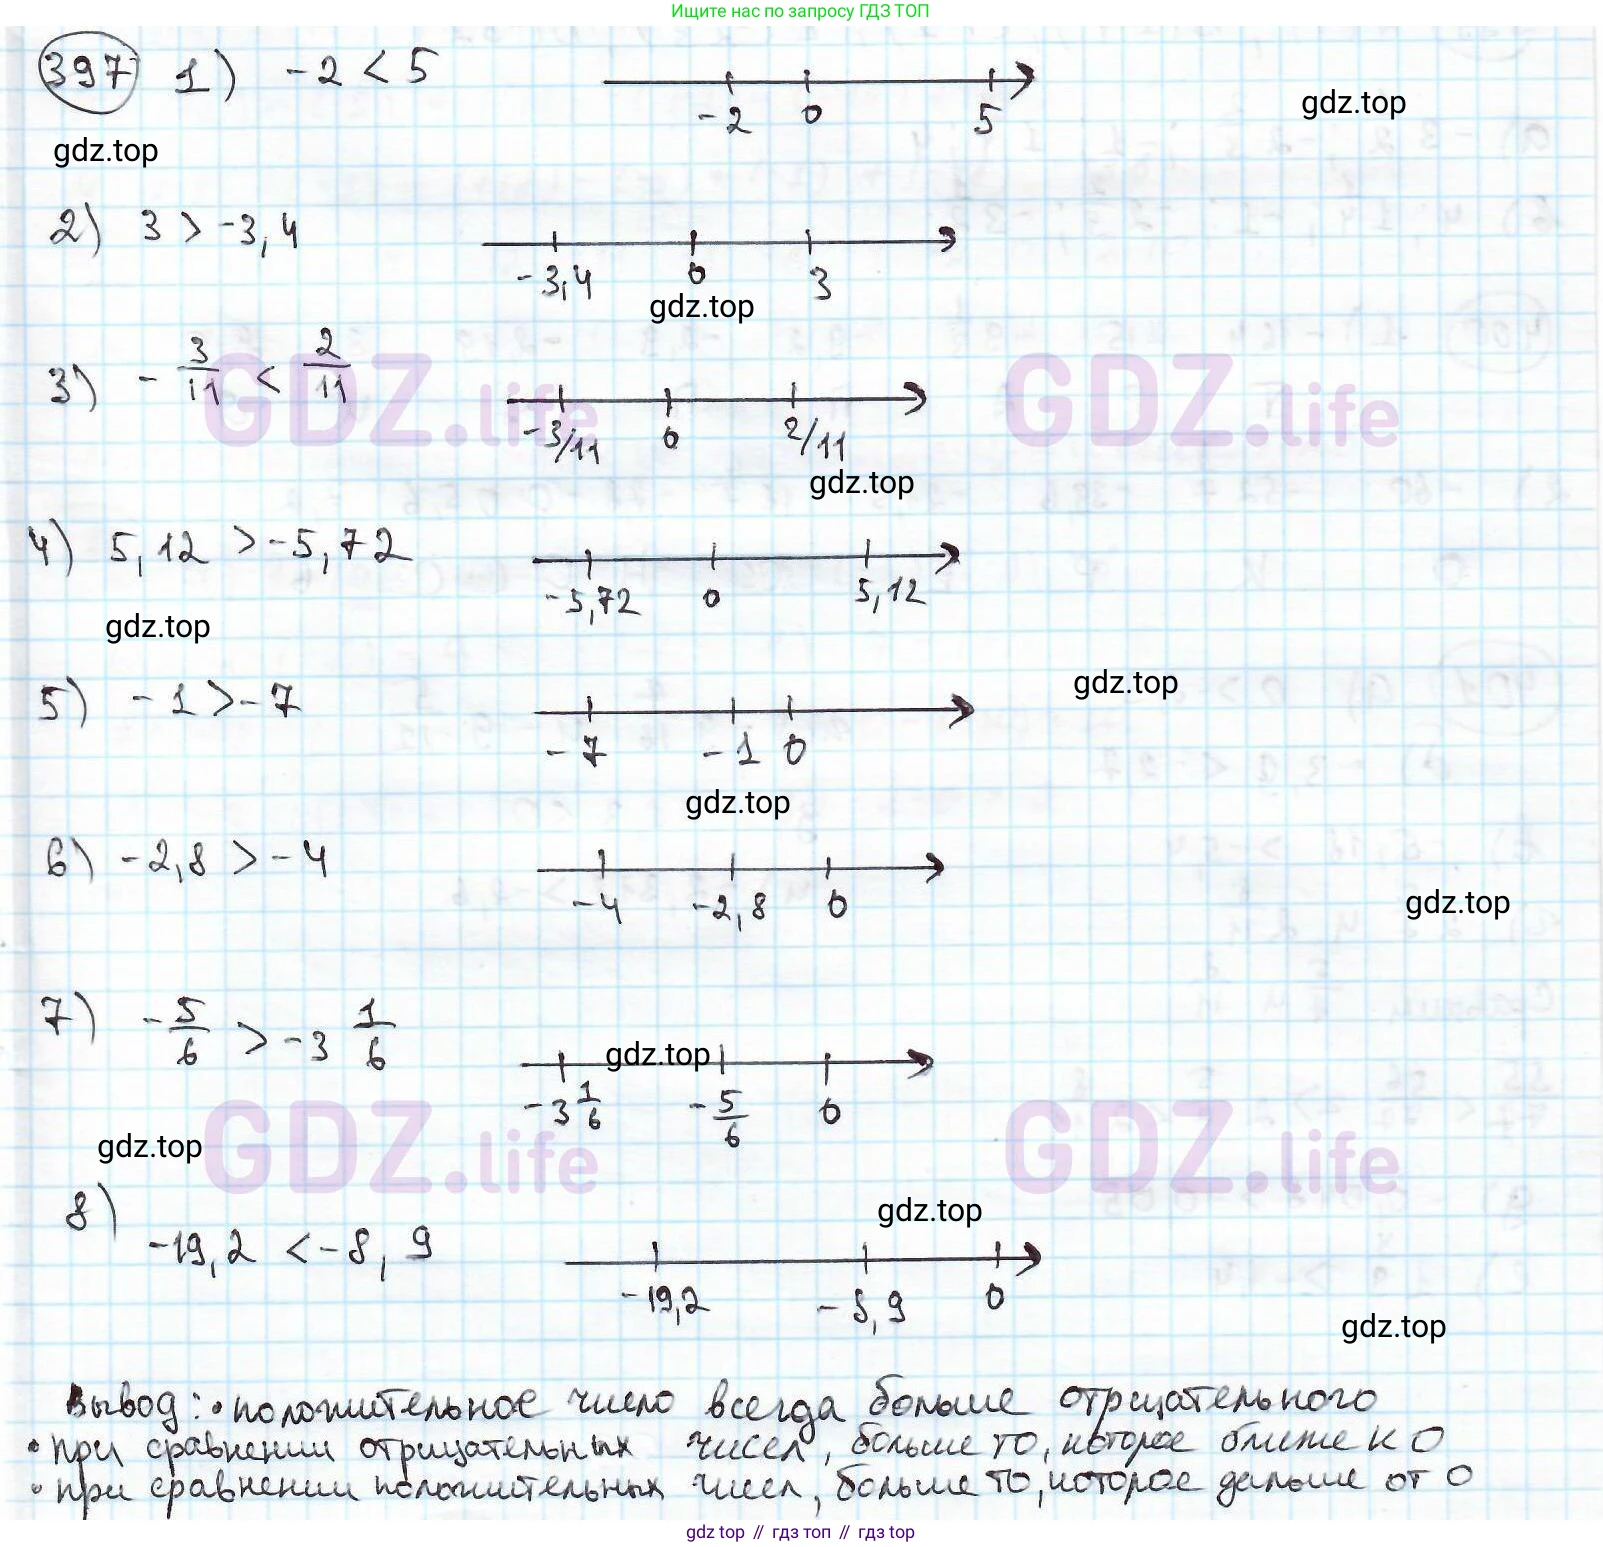 Ищите нас по запросу ГДЗ ТОП
397 1) -2 < 5
-2 0 5
gdz.top
gdz.top
2) 3 > -3,4
-3,4 0 3
gdz.top
3) - 3/11 < 2/11
-3/11 0 2/11
GDZ.life GDZ.life
gdz.top
4) 5,12 > -5,72
-5,72 0 5,12
gdz.top
5) -1 > -7
-7 -1 0
gdz.top
gdz.top
6) -2,8 > -4
-4 -2,8 0
gdz.top
7) - 5/6 > -3 1/6
gdz.top
-3 1/6 - 5/6 0
gdz.top
GDZ.life GDZ.life
8) -19,2 < -8,9
gdz.top
-19,2 -8,9 0
gdz.top
Вывод: • положительное число всегда больше отрицательного
• при сравнении отрицательных чисел, больше то, которое ближе к 0
• при сравнении положительных чисел, больше то, которое дальше от 0
gdz top // гдз топ // гдз top